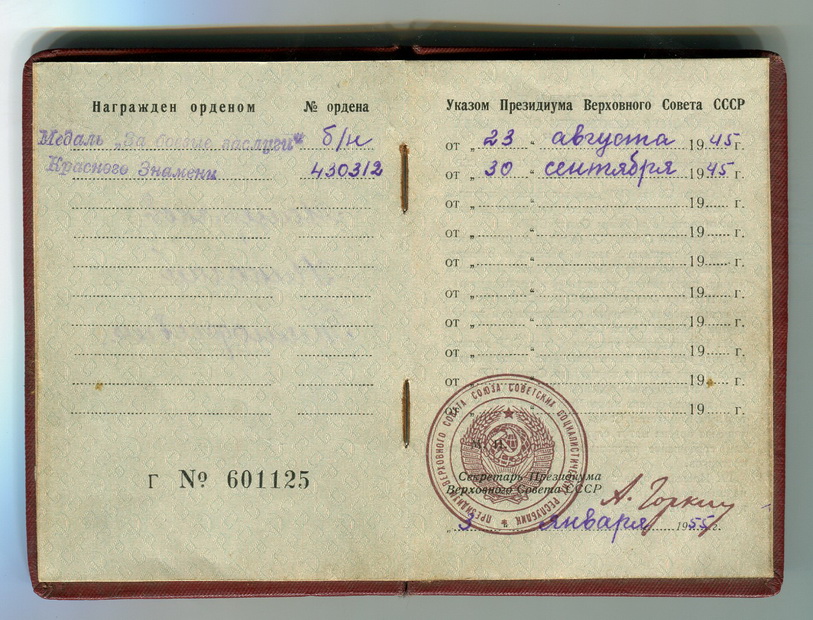 Награжден орденом № ордена
Медаль „За боевые заслуги“ б/н
Красного Знамени 430312
Г № 601125
Указом Президиума Верховного Совета СССР
от „ 23 “ августа 1945 г.
от „ 30 “ сентября 1945 г.
от „ “ 19 г.
от „ “ 19 г.
от „ “ 19 г.
от „ “ 19 г.
от „ “ 19 г.
от „ “ 19 г.
от „ “ 19 г.
от „ “ 19 г.
ПРЕЗИДИУМ ВЕРХОВНОГО СОВЕТА СОЮЗА СОВЕТСКИХ СОЦИАЛИСТИЧЕСКИХ РЕСПУБЛИК
М. П.
Секретарь Президиума
Верховного Совета СССР А. Горкин
„ 3 “ января 1955 г.